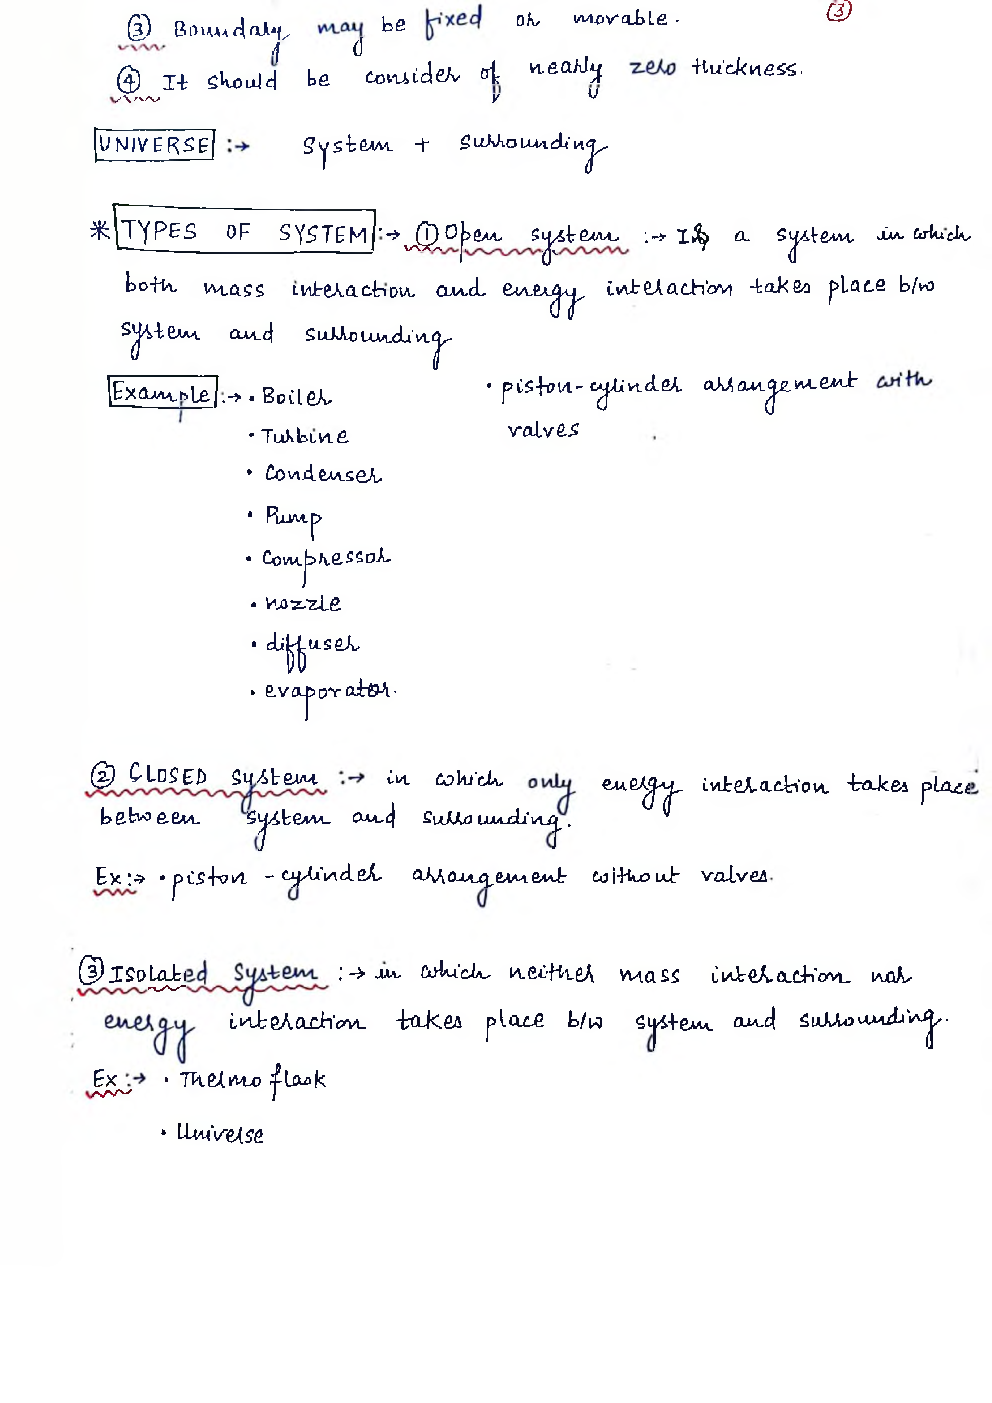 ③
③ Boundary may be fixed or movable.
④ It should be consider of nearly zero thickness.
UNIVERSE :→ System + surrounding
* TYPES OF SYSTEM :→ ① Open system :→ Is a system in which
both mass interaction and energy interaction takes place b/w
system and surrounding
Example :→ • Boiler
• piston-cylinder arrangement with
valves
• Turbine
• Condenser
• Pump
• Compressor
• nozzle
• diffuser
• evaporator.
② CLOSED system :→ in which only energy interaction takes place
between system and surrounding.
Ex :→ • piston - cylinder arrangement without valves.
③ Isolated system :→ in which neither mass interaction nor
energy interaction takes place b/w system and surrounding.
Ex :→ • Thermo flask
• Universe